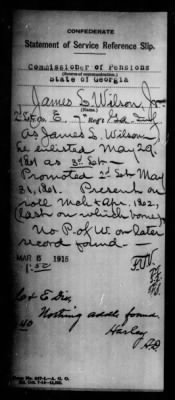 CONFEDERATE
Statement of Service Reference Slip.
Commissioner of Pensions
(Source of communication.)
State of Georgia
James S. Wilson, Jr.
(Name.)
Co. E. 7" Reg't Ga. Inf
As James S. Wilson,
he enlisted May 29,
1861 as 3d Sgt—
Promoted 2d Sgt May
31, 1861. Present on
roll Mch & Apr. 1862,
(last on which borne).
No P. of W. or later
record found.—
MAR 6 1915
C & E Div
Nothing addl found.
Harley